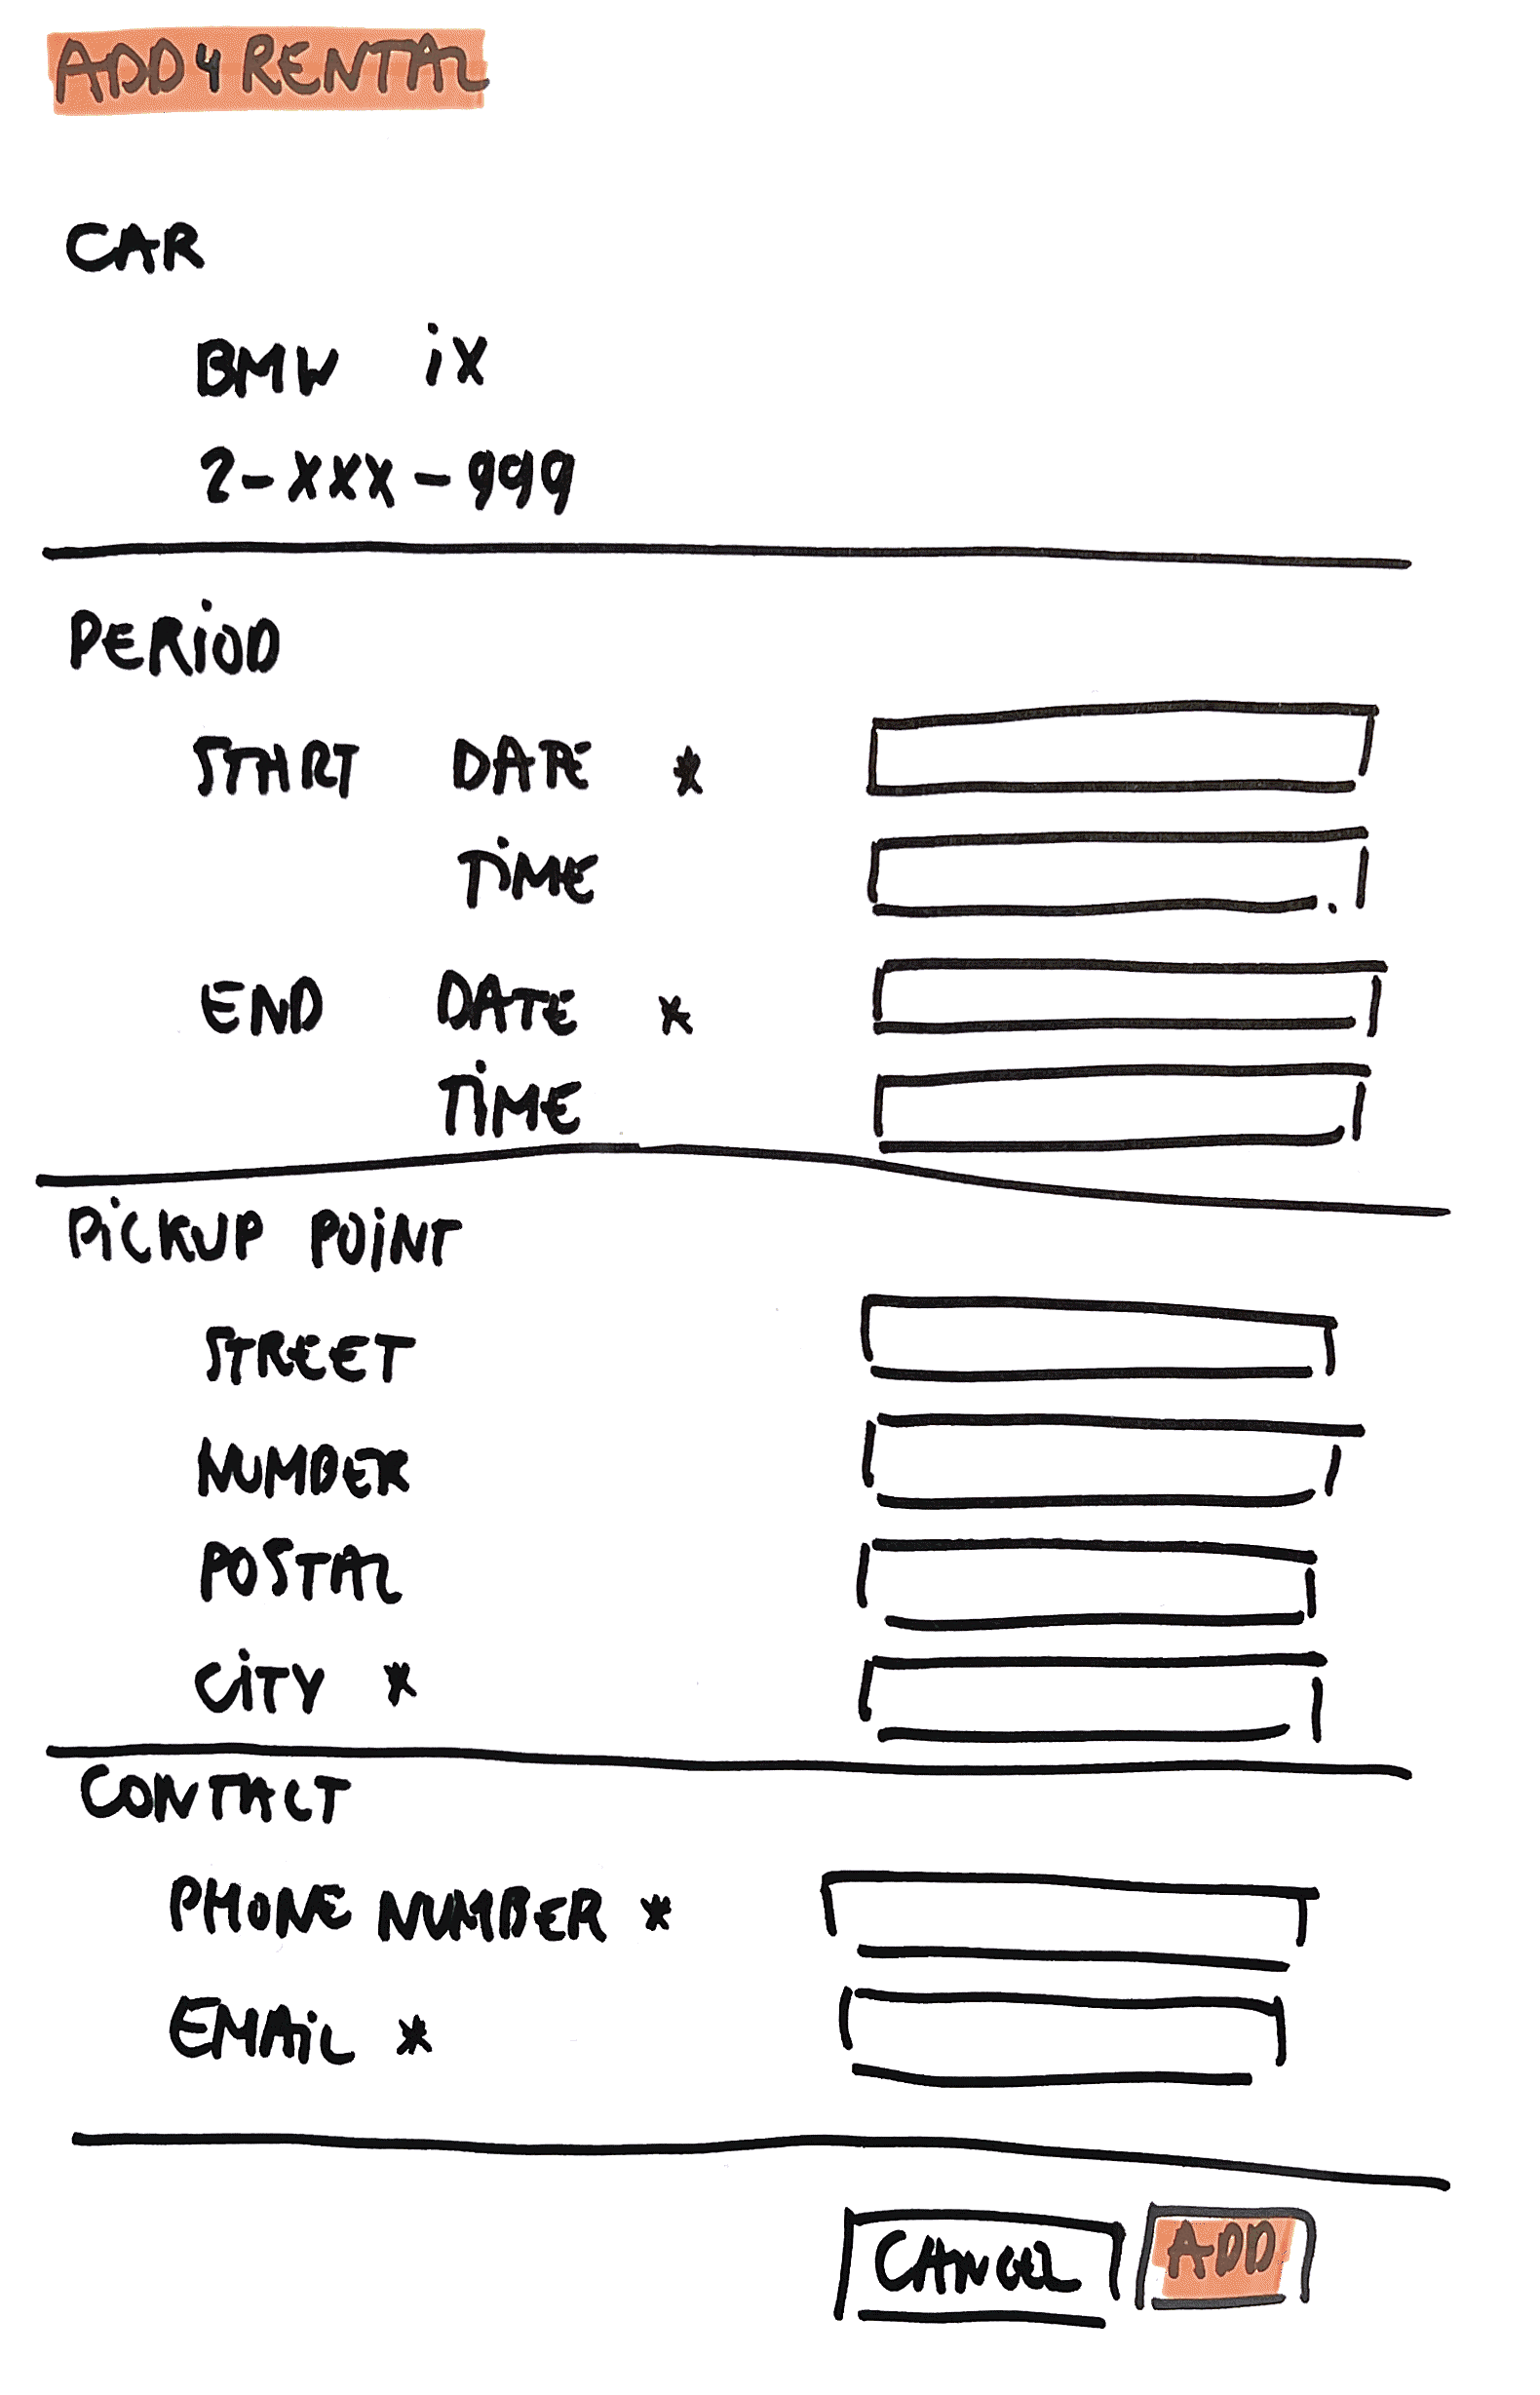 ADD 4 RENTAL
CAR
BMW iX
2-XXX-999
PERiOD
START DATE *
TiME
END DATE *
TiME
PiCKUP POiNT
STREET
NUMBER
POSTAL
CiTY *
CONTACT
PHONE NUMBER *
EMAiL *
CANCEL ADD